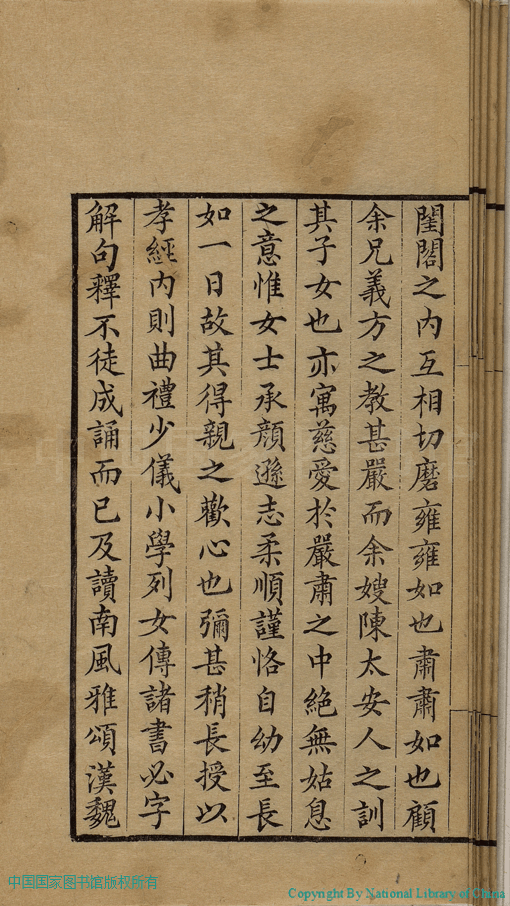 閨閣之內互相切磨雍雍如也肅肅如也顧
余兄義方之教甚嚴而余嫂陳太安人之訓
其子女也亦寓慈愛於嚴肅之中絕無姑息
之意惟女士承顏遜志柔順謹恪自幼至長
如一日故其得親之歡心也彌甚稍長授以
孝經內則曲禮少儀小學列女傳諸書必字
解句釋不徒成誦而已及讀南風雅頌漢魏
中国国家图书馆版权所有
Copyright By National Library of China